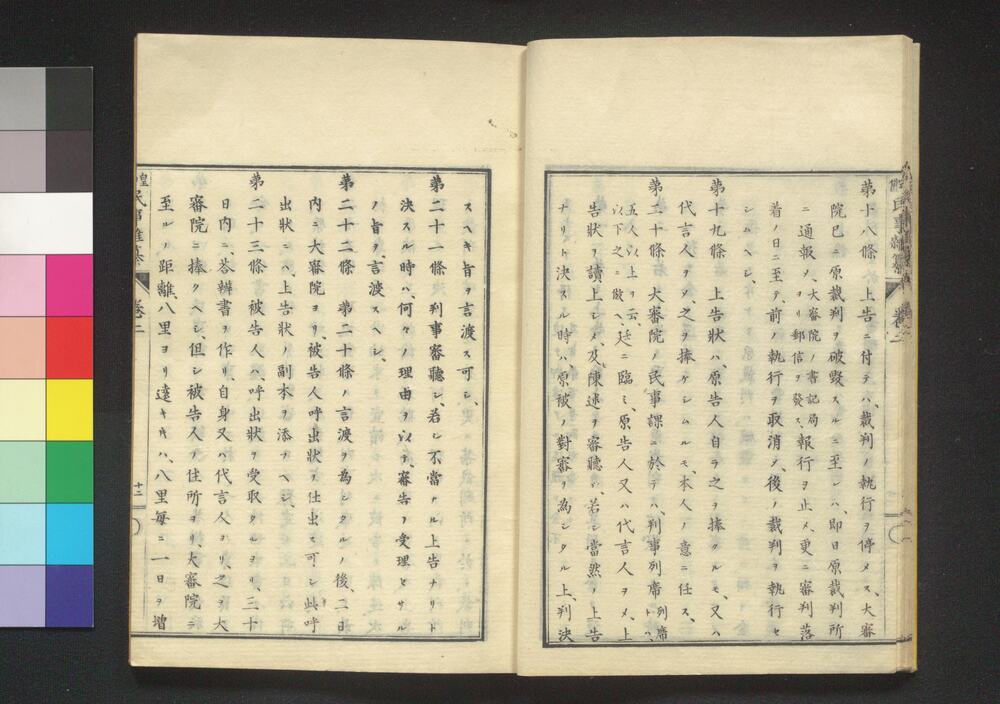 第十八條　上告ニ付テハ、裁判ノ執行ヲ停メス、大審
院已ニ原裁判ヲ破毀スルニ至レハ、即日原裁判所
ニ通報ノ、大審院ノ書記局ヨリ郵信ヲ發ス、報行ヲ止メ、更ニ審判落
着ノ日ニ至テ、前ノ執行ヲ取消シ、後ノ裁判ヲ執行セ
シムヘシ、
第十九條　上告狀ハ、原告人自ラ之ヲ捧クルモ、又ハ
代言人ヲシテ、之ヲ捧ケシムルモ、本人ノ意ニ任ス、
第二十條　大審院ノ民事課ニ於テハ、判事列席列席トハ、
五人以上ヲ云、以下之ニ倣ヘ、廷ニ臨ミ、原告人又ハ代言人ヲシテ、上
告狀ヲ讀上シメ、及陳述ヲ審聽シ、若シ當然ノ上告
ナリト決スル時ハ、原被ノ對審ヲ為シタル上、判決
スヘキ旨ヲ言渡ス可シ、
第二十一條　判事審聽シ、若シ不當ナル上告ナリト
決スル時ハ、何々ノ理由ヲ以テ、審告ヲ受理セサル
ノ旨ヲ、言渡スヘシ、
第二十二條　第二十條ノ言渡ヲ為シタルノ後、二日
内ニ大審院ヨリ、被告人呼出狀ヲ仕出ス可シ此呼
出狀ニハ、上告狀ノ副本ヲ添フヘシ、
第二十三條　被告人ハ、呼出狀ヲ受取タルヨリ、三十
日内ニ、答辨書ヲ作リ、自身又ハ代言人ヨリ、之ヲ大
審院ニ捧クヘシ、但シ被告人ノ住所ヨリ、大審院ニ
至ルノ距離、八里ヨリ遠キキハ、八里毎ニ一日ヲ増
民事
卷二
十二